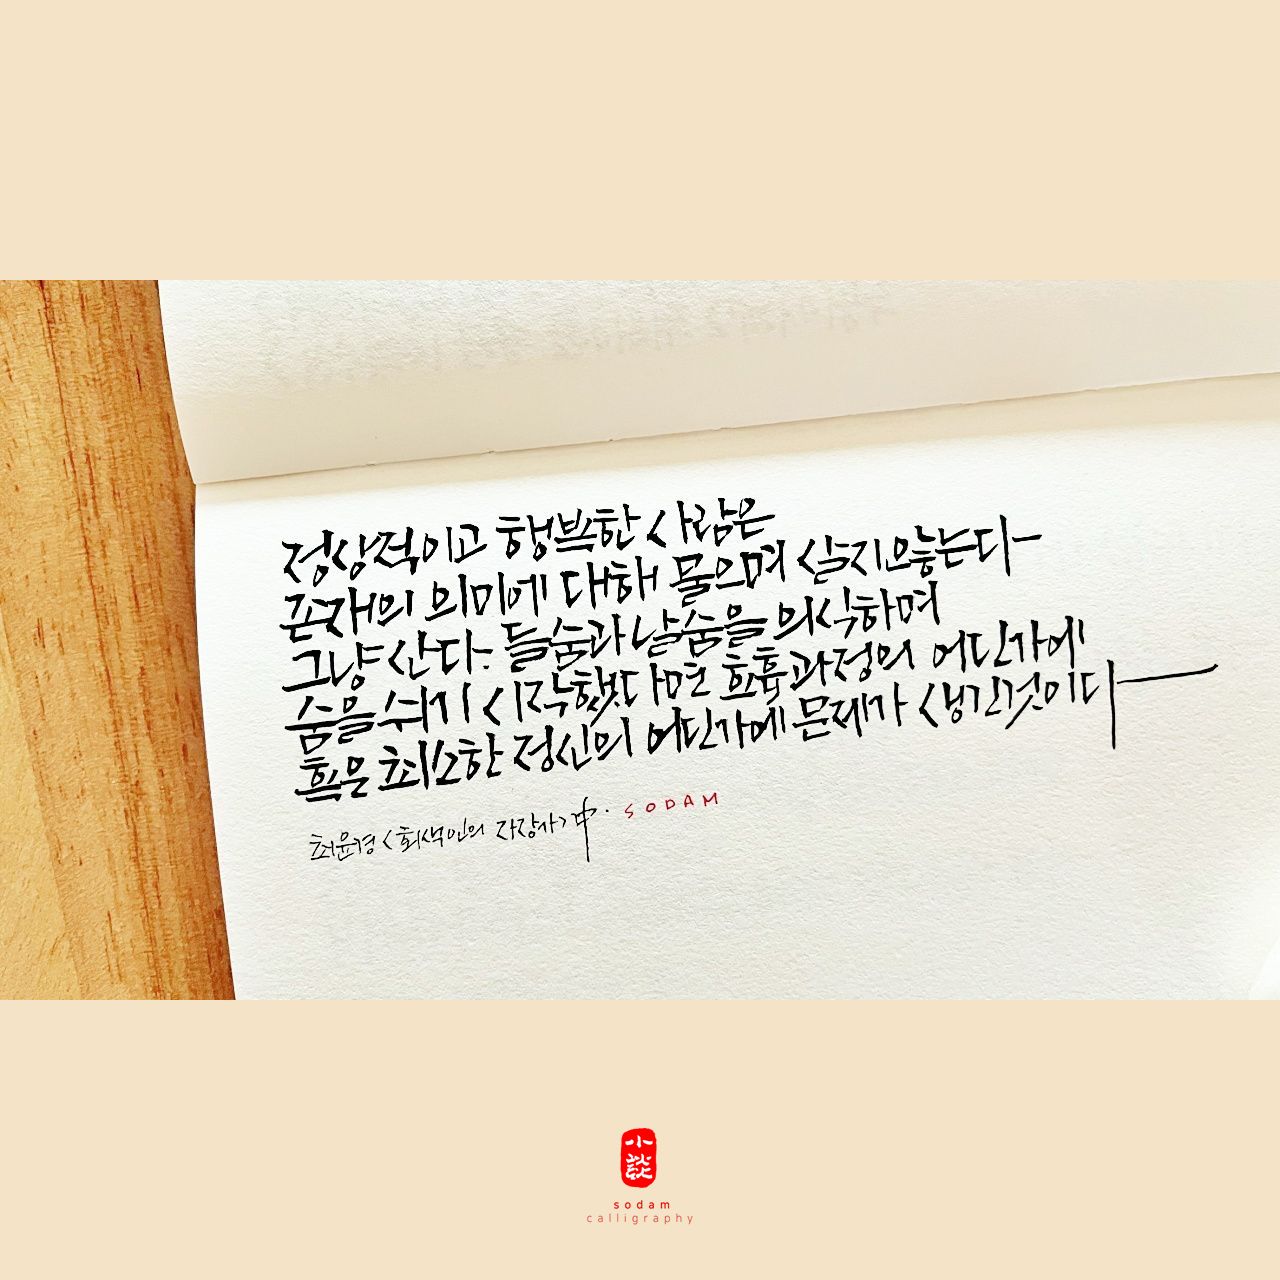 정상적이고 행복한 사람은
존재의 의미에 대해 물으며 살지 않는다
그냥 산다. 들숨과 날숨을 의식하며
숨을 쉬기 시작했다면 호흡 과정의 어딘가에
혹은 최소한 정신의 어딘가에 문제가 생긴 것이다
최윤경 <회색인의 자장가> 中. SODAM
小談
sodam
calligraphy